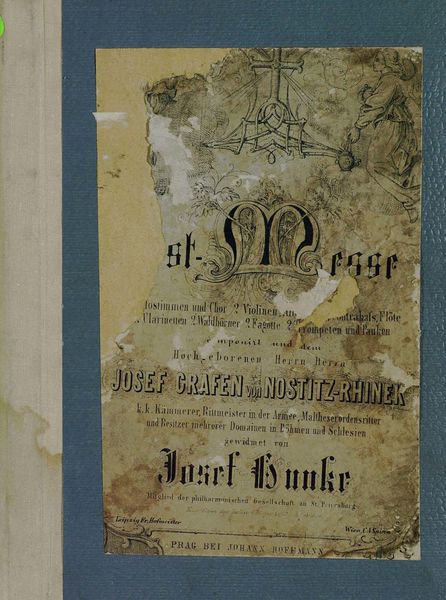 st-Messe
tostimmen und Chor 2 Violinen, Contrabass, Flöte
Clarinetten 2 Waldhörner 2 Fagotte 2 Trompeten und Pauken
mponirt und dem
Hochgeborenen Herrn Herrn
JOSEF GRAFEN VON NOSTITZ-RHINEK
k.k. Kämmerer, Rittmeister in der Armee, Maltheserordensritter
und Besitzer mehrorer Domainen in Böhmen und Schlesien
gewidmet von
Josef Hunke
Mitglied der philharmonischen Gesellschaft zu St. Petersburg
Leipzig Fr. Hofmeister
Wien
PRAG BEI JOHANN HOFFMANN